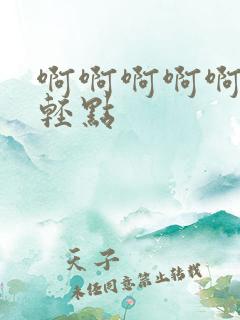 啊啊啊啊啊
輕點
天子
未任同意禁止转载